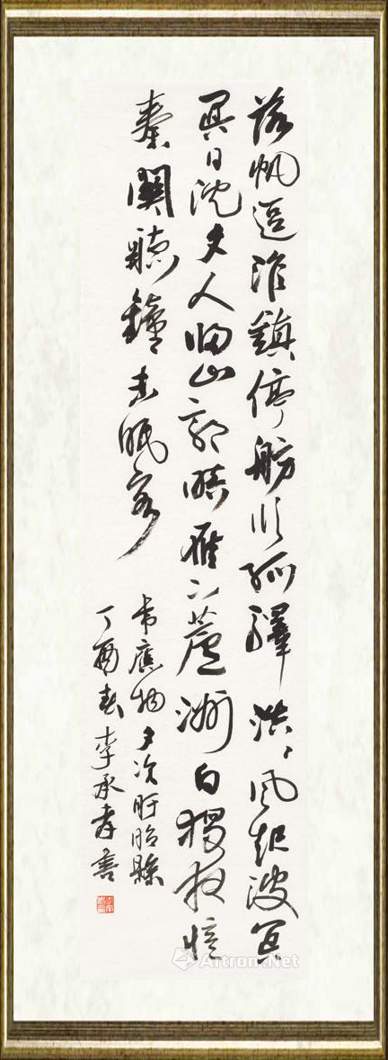 落帆逗淮鎮停舫临孤驛浩〻風起波冥
冥日沈夕人歸山郭暗雁下蘆洲白獨夜憶
秦關聽鐘未眠客
韋應物夕次盱眙縣
丁酉春李承孝書
Artron.Net